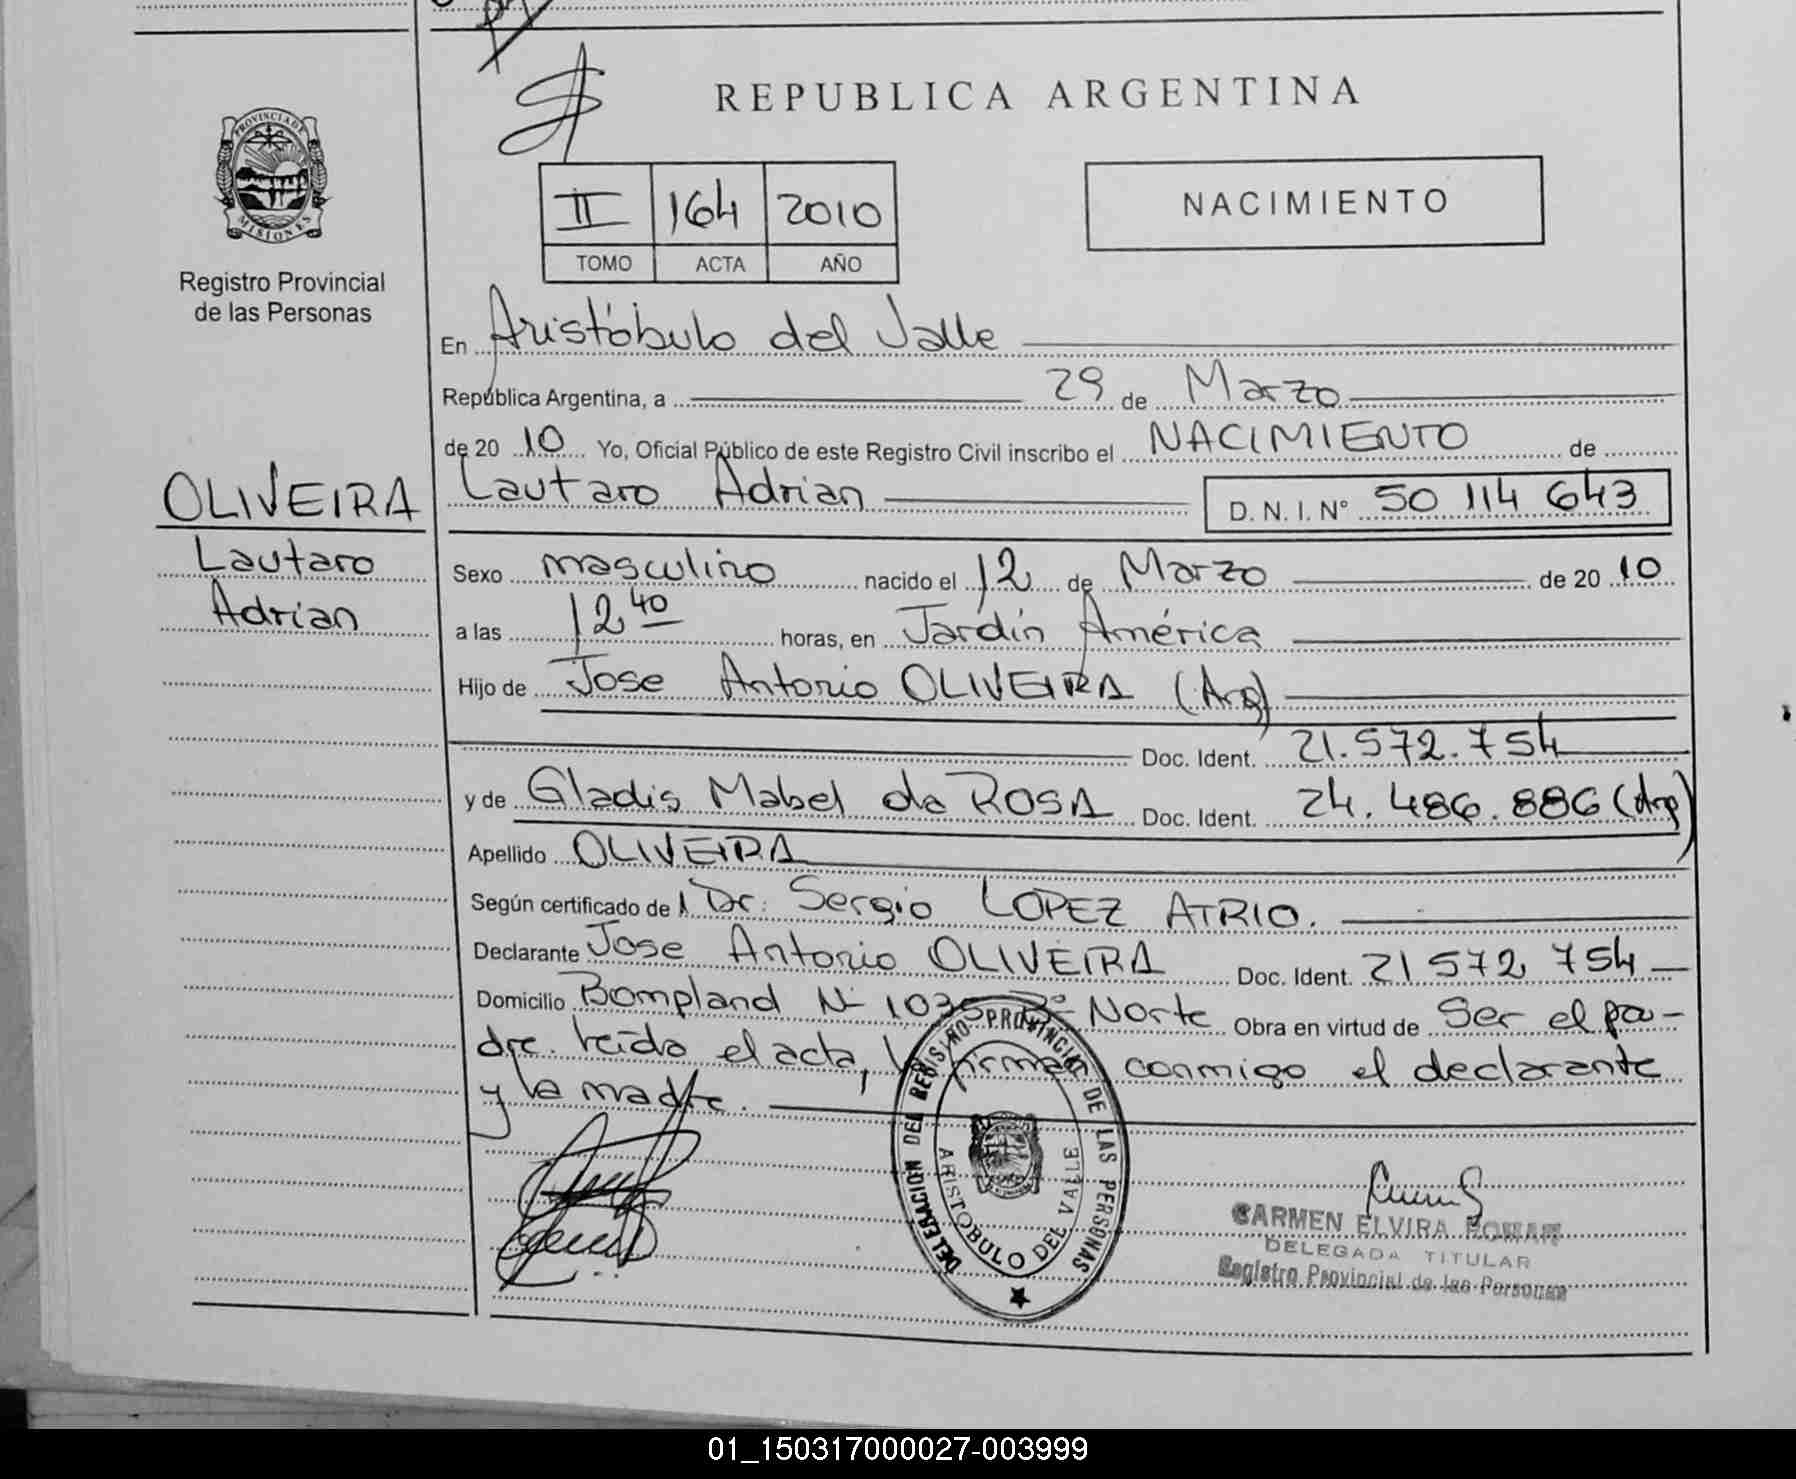 REPUBLICA ARGENTINA
PROVINCIA DE
MISIONES
Registro Provincial
de las Personas
II 164 2010
TOMO ACTA AÑO
NACIMIENTO
En Aristóbulo del Valle
República Argentina, a 29 de Marzo
de 20 10 Yo, Oficial Público de este Registro Civil inscribo el NACIMIENTO de
OLIVEIRA
Lautaro
Adrian
Lautaro Adrian D. N. I. N° 50 114 643
Sexo masculino nacido el 12 de Marzo de 20 10
a las 12 40 horas, en Jardín América
Hijo de Jose Antonio OLIVEIRA (Arg)
Doc. Ident. 21.572.754
y de Gladis Mabel da ROSA Doc. Ident. 24.486.886 (Arg)
Apellido OLIVEIRA
Según certificado de Dr. Sergio LOPEZ ATRIO.
Declarante Jose Antonio OLIVEIRA Doc. Ident. 21 572 754
Domicilio Bompland N° 1035 B° Norte Obra en virtud de Ser el pa-
dre. Leída el acta, firman conmigo el declarante
y la madre.
DELEGACION DEL REGISTRO PROVINCIAL DE LAS PERSONAS
ARISTOBULO DEL VALLE
CARMEN ELVIRA ROMAN
DELEGADA TITULAR
Registro Provincial de las Personas
01_150317000027-003999